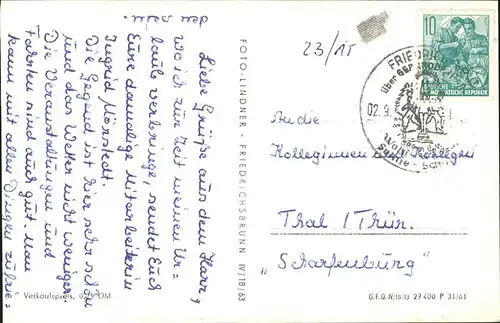 Liebe Grüße aus dem Harz,
wo ich zur Zeit meinen Ur=
laub verbringe, sendet Euch
Eure damalige Mitarbeiterin
Ingrid Mörstedt.
Die Gegend ist hier sehr schön
und das Wetter nicht weniger.
Die Veranstaltungen und
Fahrten sind auch gut. Man
kann mit allen Dingen zufrie=
den sein.
Verkaufspreis, DM
FOTO-LINDNER · FRIEDRICHSBRUNN IV/18/63
23/15
10
DEUTSCHE
DEMOKRATISCHE REPUBLIK
FRIEDRICHSBRUNN
über
02.9.
An die
Kolleginnen und Kollegen
Thal / Thür.
„Scharfenburg"
G.F.Q. IV/18/13 27 400 P 31/61